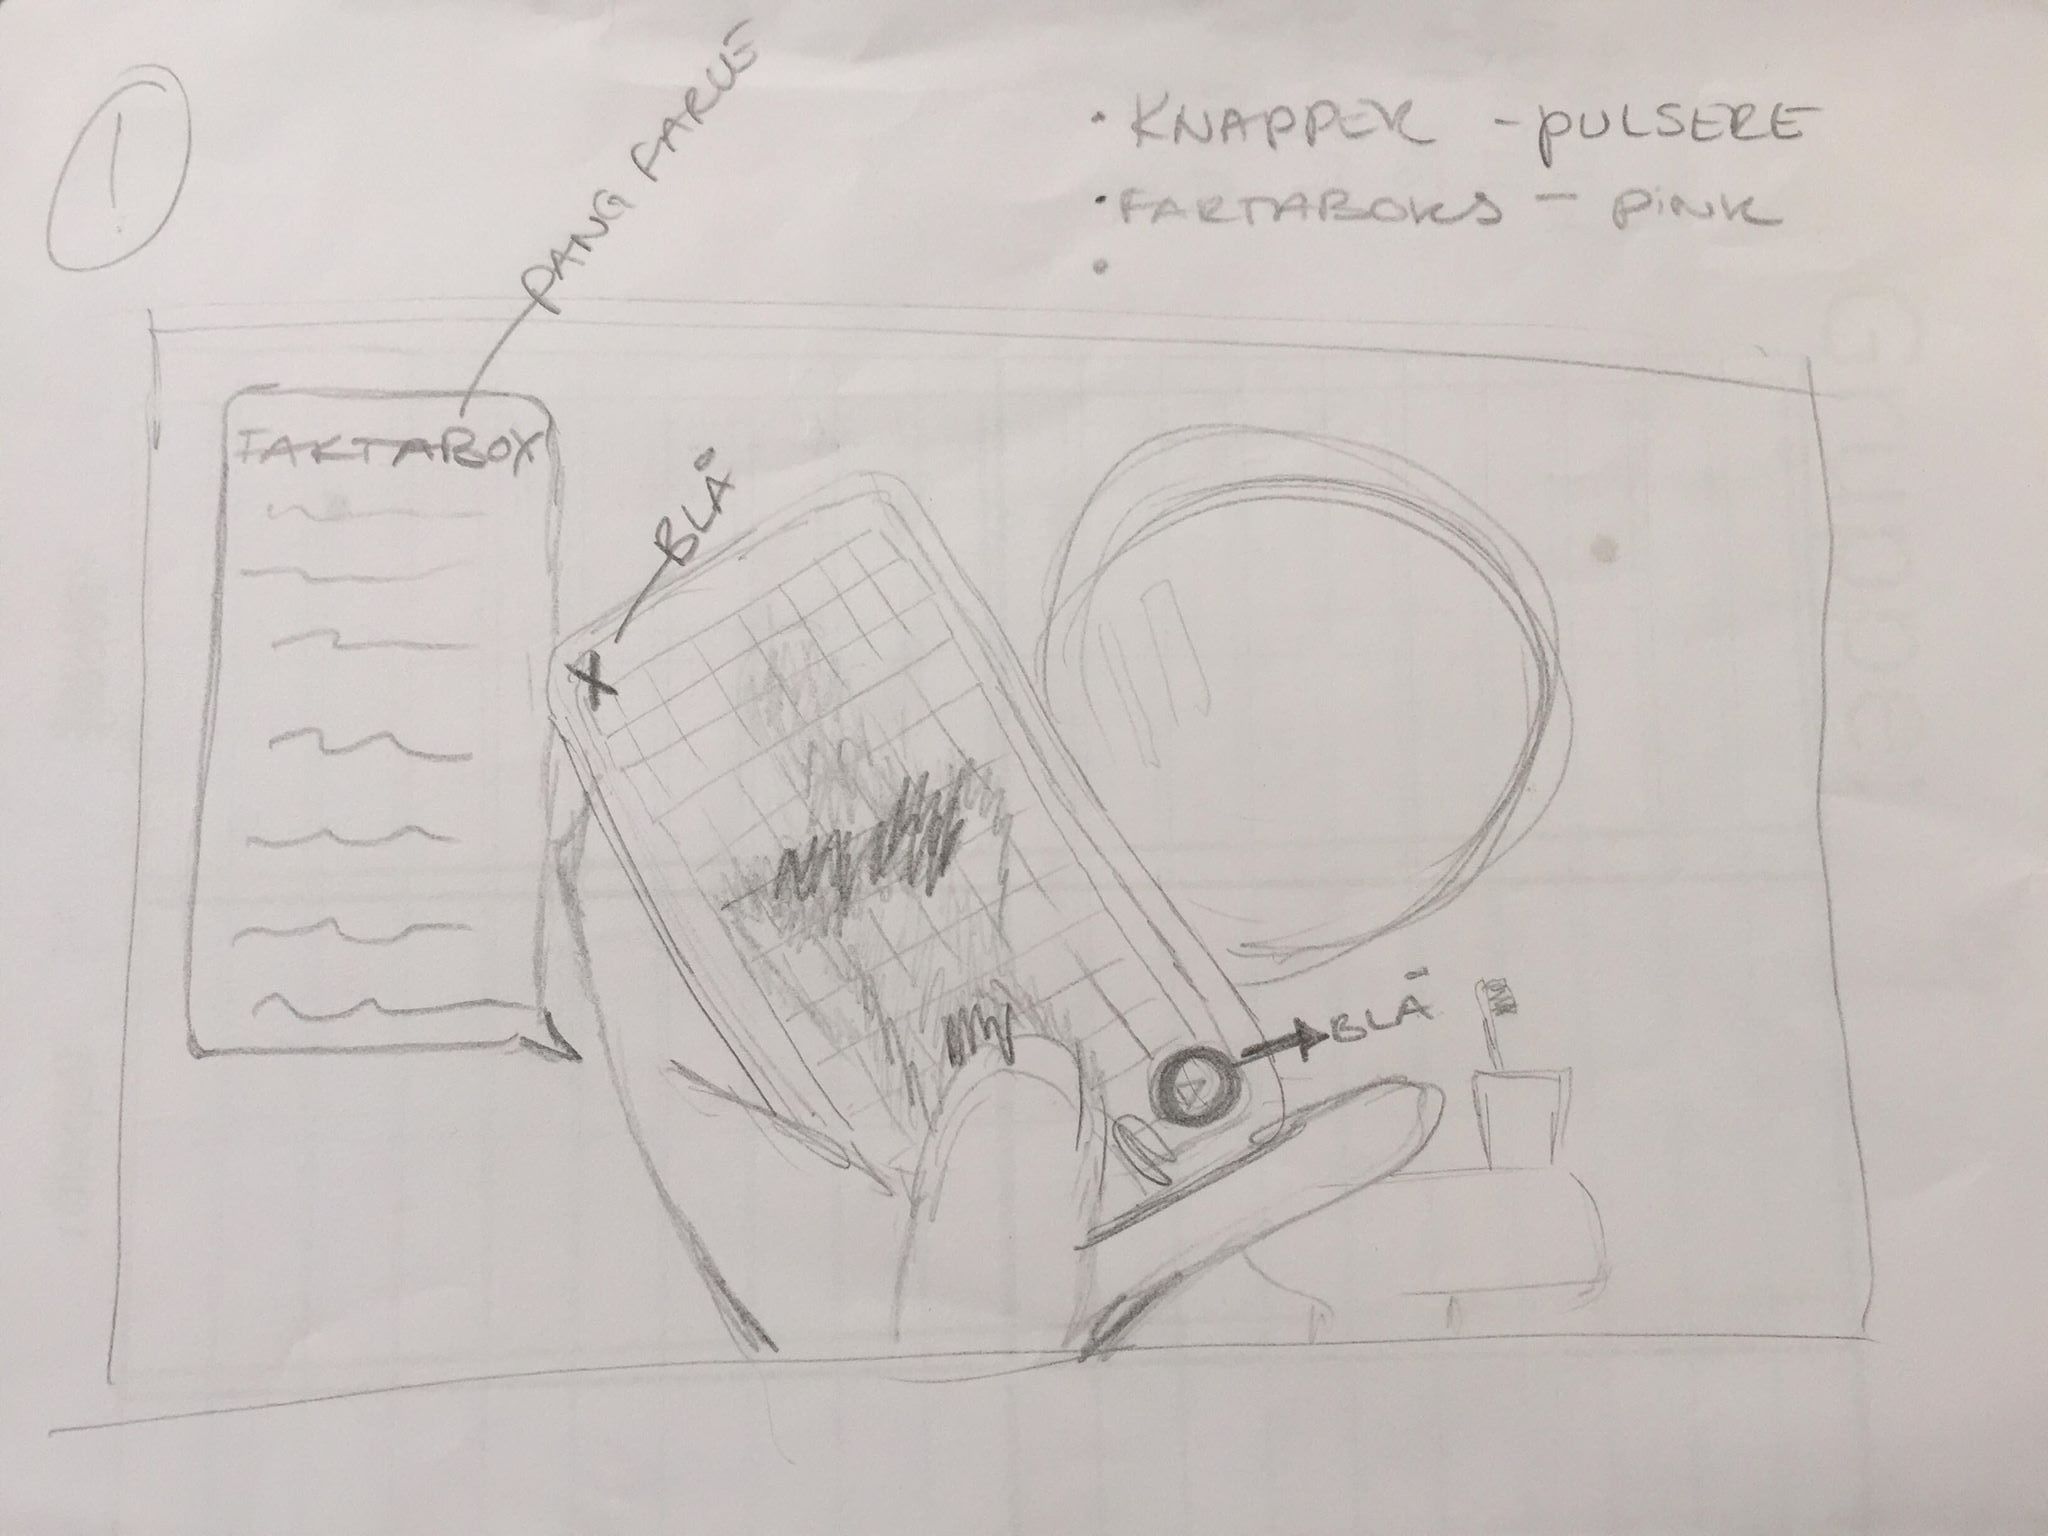 1
PANG FARVE
· KNAPPER - PULSERE
· FAKTABOKS - PINK
·
FAKTABOX
BLÅ
X
BLÅ